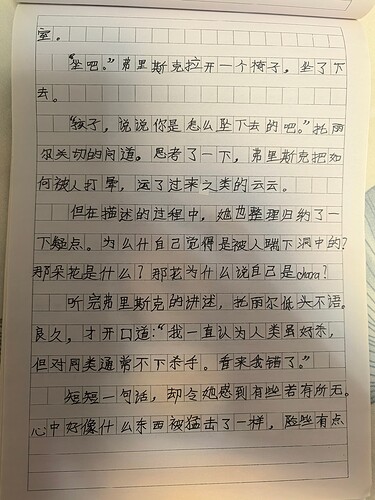 室。
“坐吧。”弗里斯克拉开一个椅子，坐了下
去。
“孩子，说说你是怎么坠下去的吧。”托丽
尔关切的问道。思考了一下，弗里斯克把如
何被人打晕，运了过来之类的云云。
但在描述的过程中，她也整理归纳了一
下疑点。为么什自己觉得是被人踹下洞中的？
那朵花是什么？那花为什么说自己是chara？
听完弗里斯克的讲述，托丽尔低头不语。
良久，才开口道：“我一直认为人类虽好杀，
但对同类通常不下杀手。看来我错了。”
短短一句话，却令她感到有些若有所
心中好像什么东西被猛击了一样，脸些有点